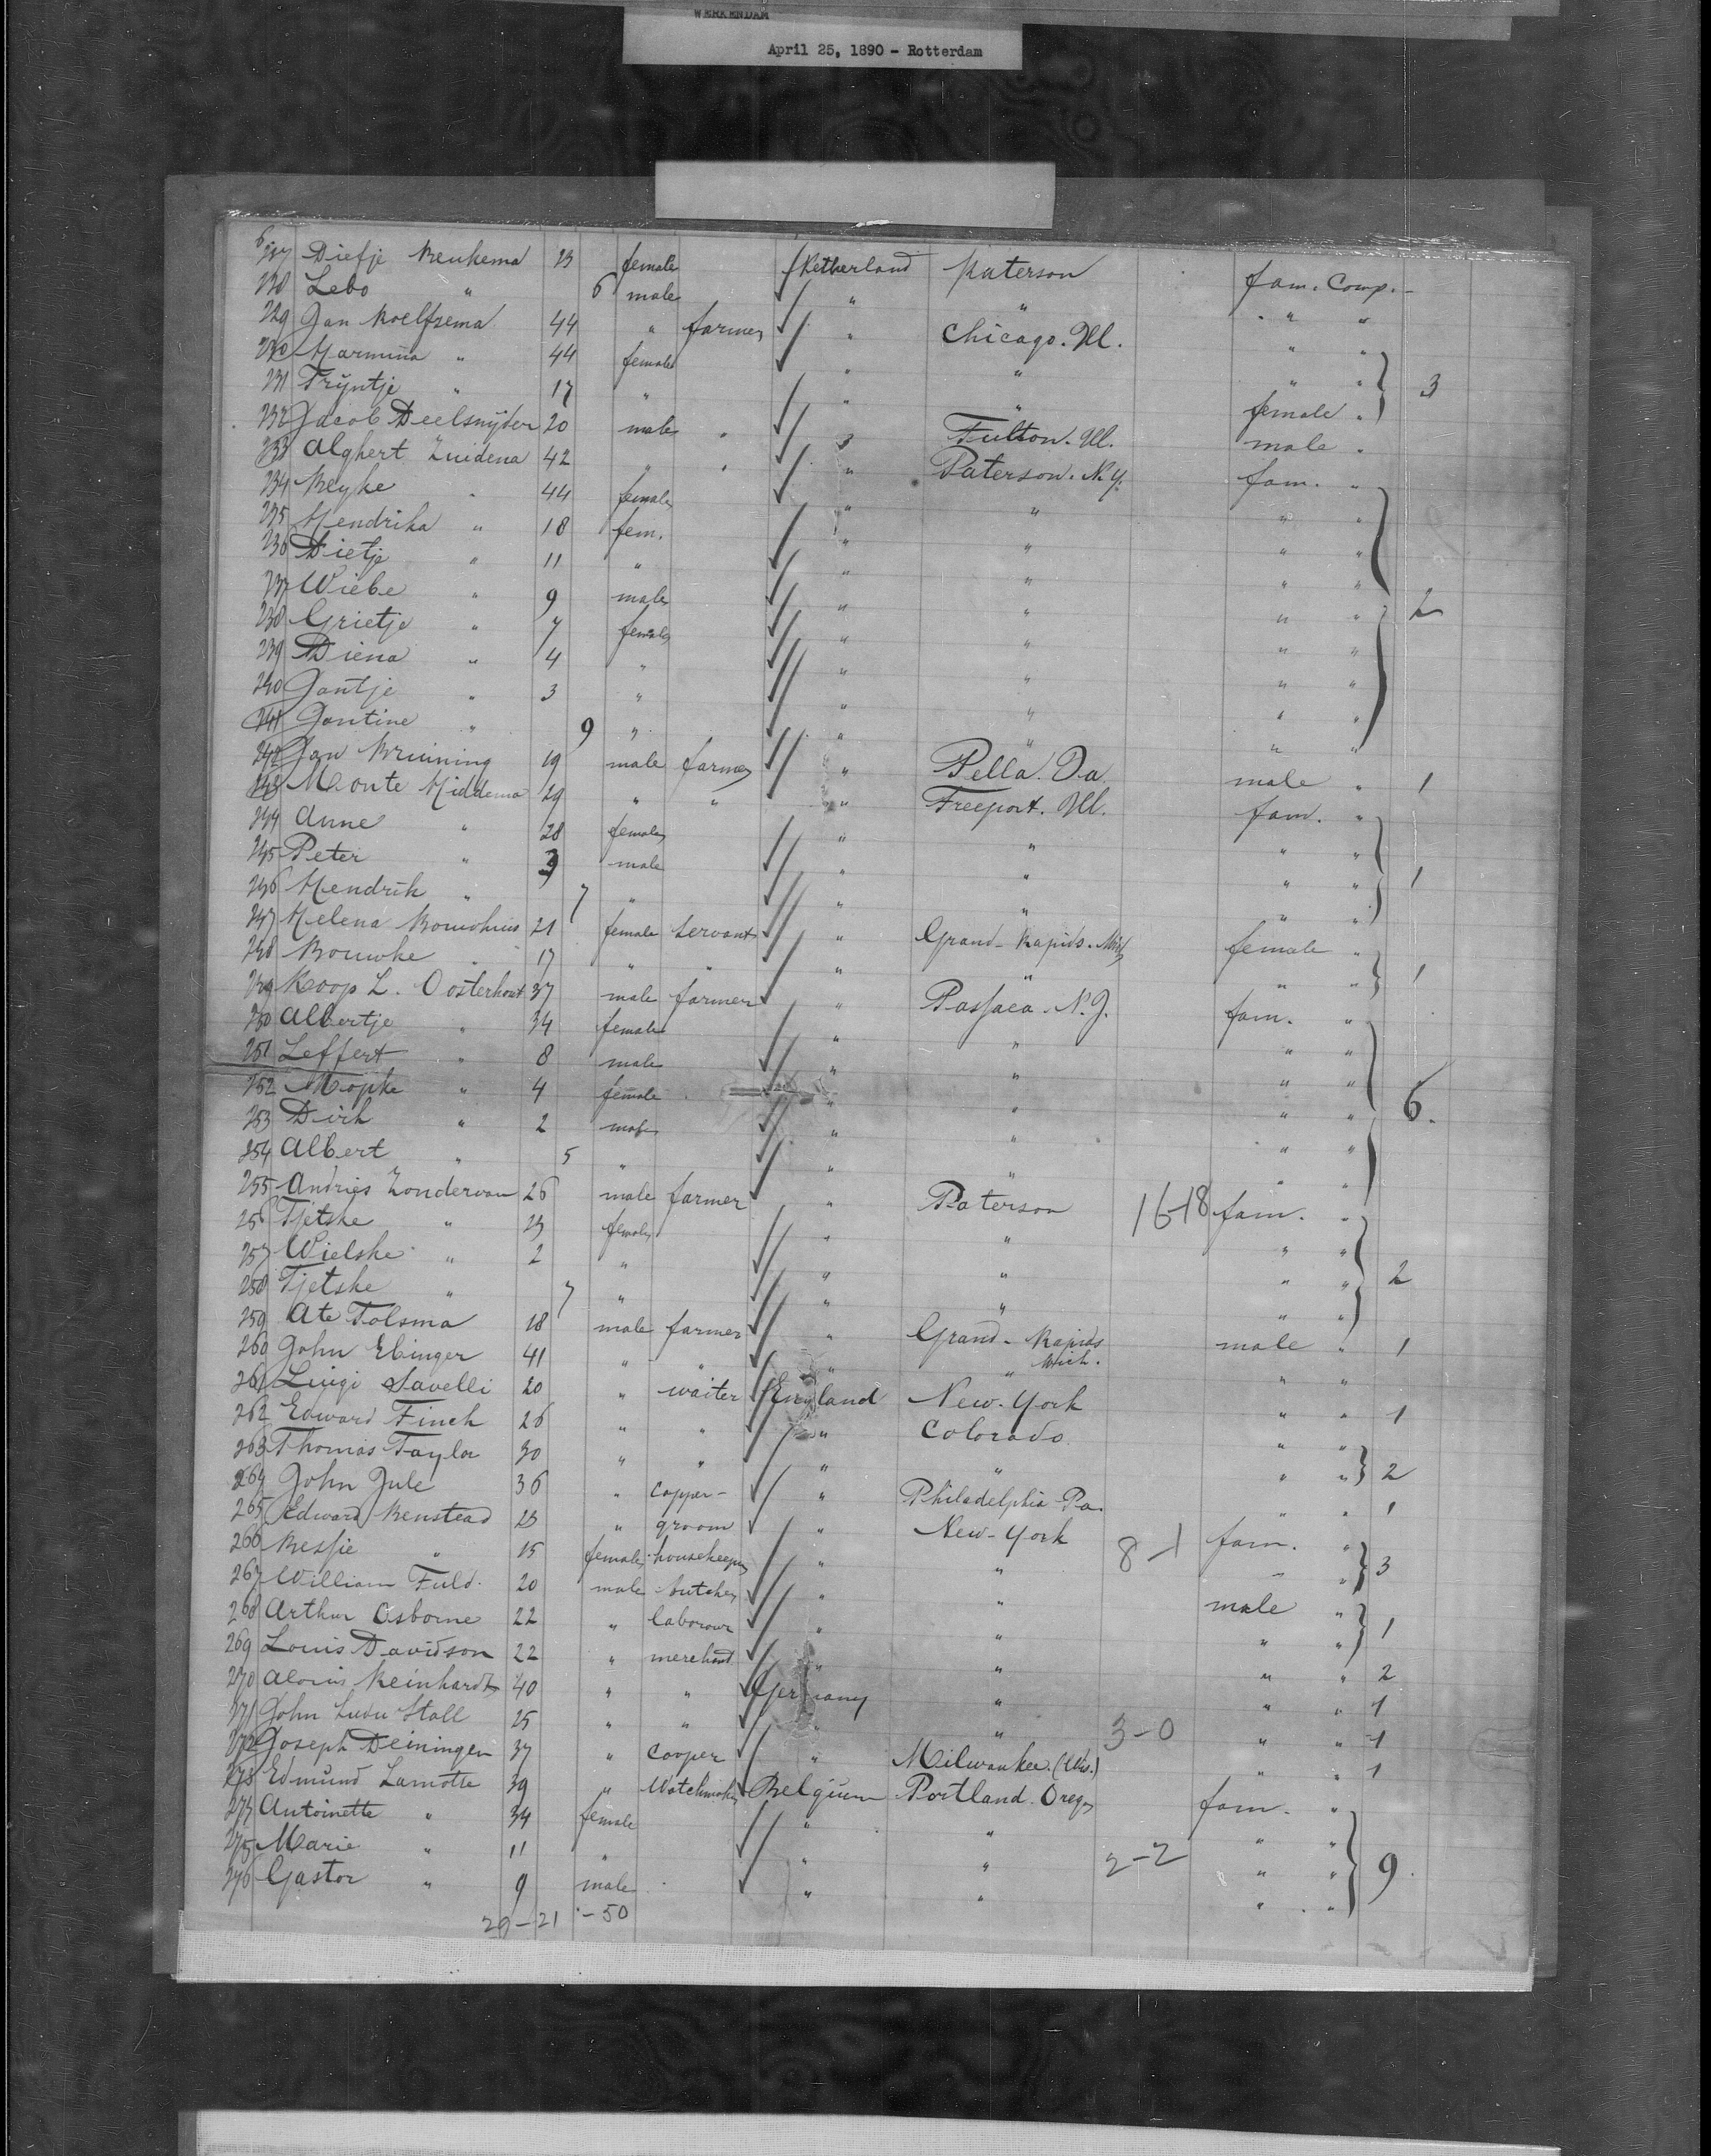 WERKENDAM
April 25, 1890 - Rotterdam
227 Diefje Beukema 23 female Netherland Paterson fam. Comp.
228 Lebo " 6 male " " " "
229 Jan Roelfsema 44 " farmer " Chicago. Ill. " "
230 Harmina " 44 female " " " " 3
231 Trÿntje " 17 " " " female "
232 Jacob Deelsnÿder 20 male " " Fulton. Ill. male "
233 Alghert Zuidena 42 " " " Paterson. N.Y. fam. "
234 Reyke " 44 female " " " "
235 Hendrika " 18 fem. " " " "
236 Dietje " 11 " " " " "
237 Wiebe " 9 male " " " " 2
238 Grietje " 7 female " " " "
239 Diena " 4 " " " " "
240 Jantje " 3 " " " " "
241 Jantine " 9 " " " " "
242 Jan Bruining 19 male farmer " Pella. Ia. male " 1
243 Monte Hiddema 29 " " " Freeport. Ill. fam. "
244 Anne " 28 female " " " "
245 Peter " 3 male " " " " 1
246 Hendrik " 7 " " " " "
247 Helena 21 female servant " Grand-Rapids. Mich female "
248 Bouwke " 17 " " " " " " 1
249 Koop L. Oosterhout 37 male farmer " Passaca. N.J. fam. "
250 Albertje " 34 female " " " "
251 Leffert " 8 male " " " "
252 Mopke " 4 female " " " " 6.
253 Dirk " 2 male " " " "
254 Albert " 5 " " " " "
255 Andries Zondervan 26 male farmer " Paterson 16-18 fam. "
256 Tjetske " 23 female " " " "
257 Wielske " 2 " " " " " 2
258 Tjetske " 7 " " " " "
259 Ate Tolsma 18 male farmer " Grand-Rapids Mich. male " 1
260 John Ebinger 41 " " " " " "
261 Luigi Savelli 20 " waiter England New-York " " 1
262 Edward Finch 26 " " " Colorado " "
263 Thomas Taylor 30 " " " " " " 2
264 John Jule 36 " copper- " Philadelphia Pa. " " 1
265 Edward Benstead 23 " groom " New-York 8-1 fam. "
266 Bessie " 15 female housekeeper " " " " 3
267 William Fuld. 20 male butcher " " male "
268 Arthur Osborne 22 " labourer " " " " 1
269 Louis Davidson 22 " merchant " " " " 2
270 Alouis Reinhardt 40 " " Germany " " " 1
271 John Stoll 25 " " " " 3-0 " " 1
272 Joseph Deiningen 37 " cooper " Milwaukee. (Wis.) " " 1
273 Edmund Lamotte 39 " Watchmaker Belgium Portland. Oregon fam. "
274 Antoinette " 34 female " " " "
275 Marie " 11 " " " 2-2 " " 9.
276 Gaston " 9 male " " " "
29-21 -50